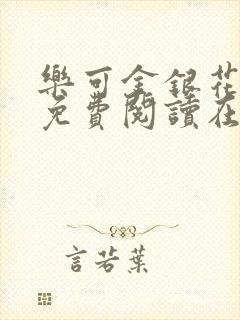 樂可金銀花
免費閱讀在
言若葉